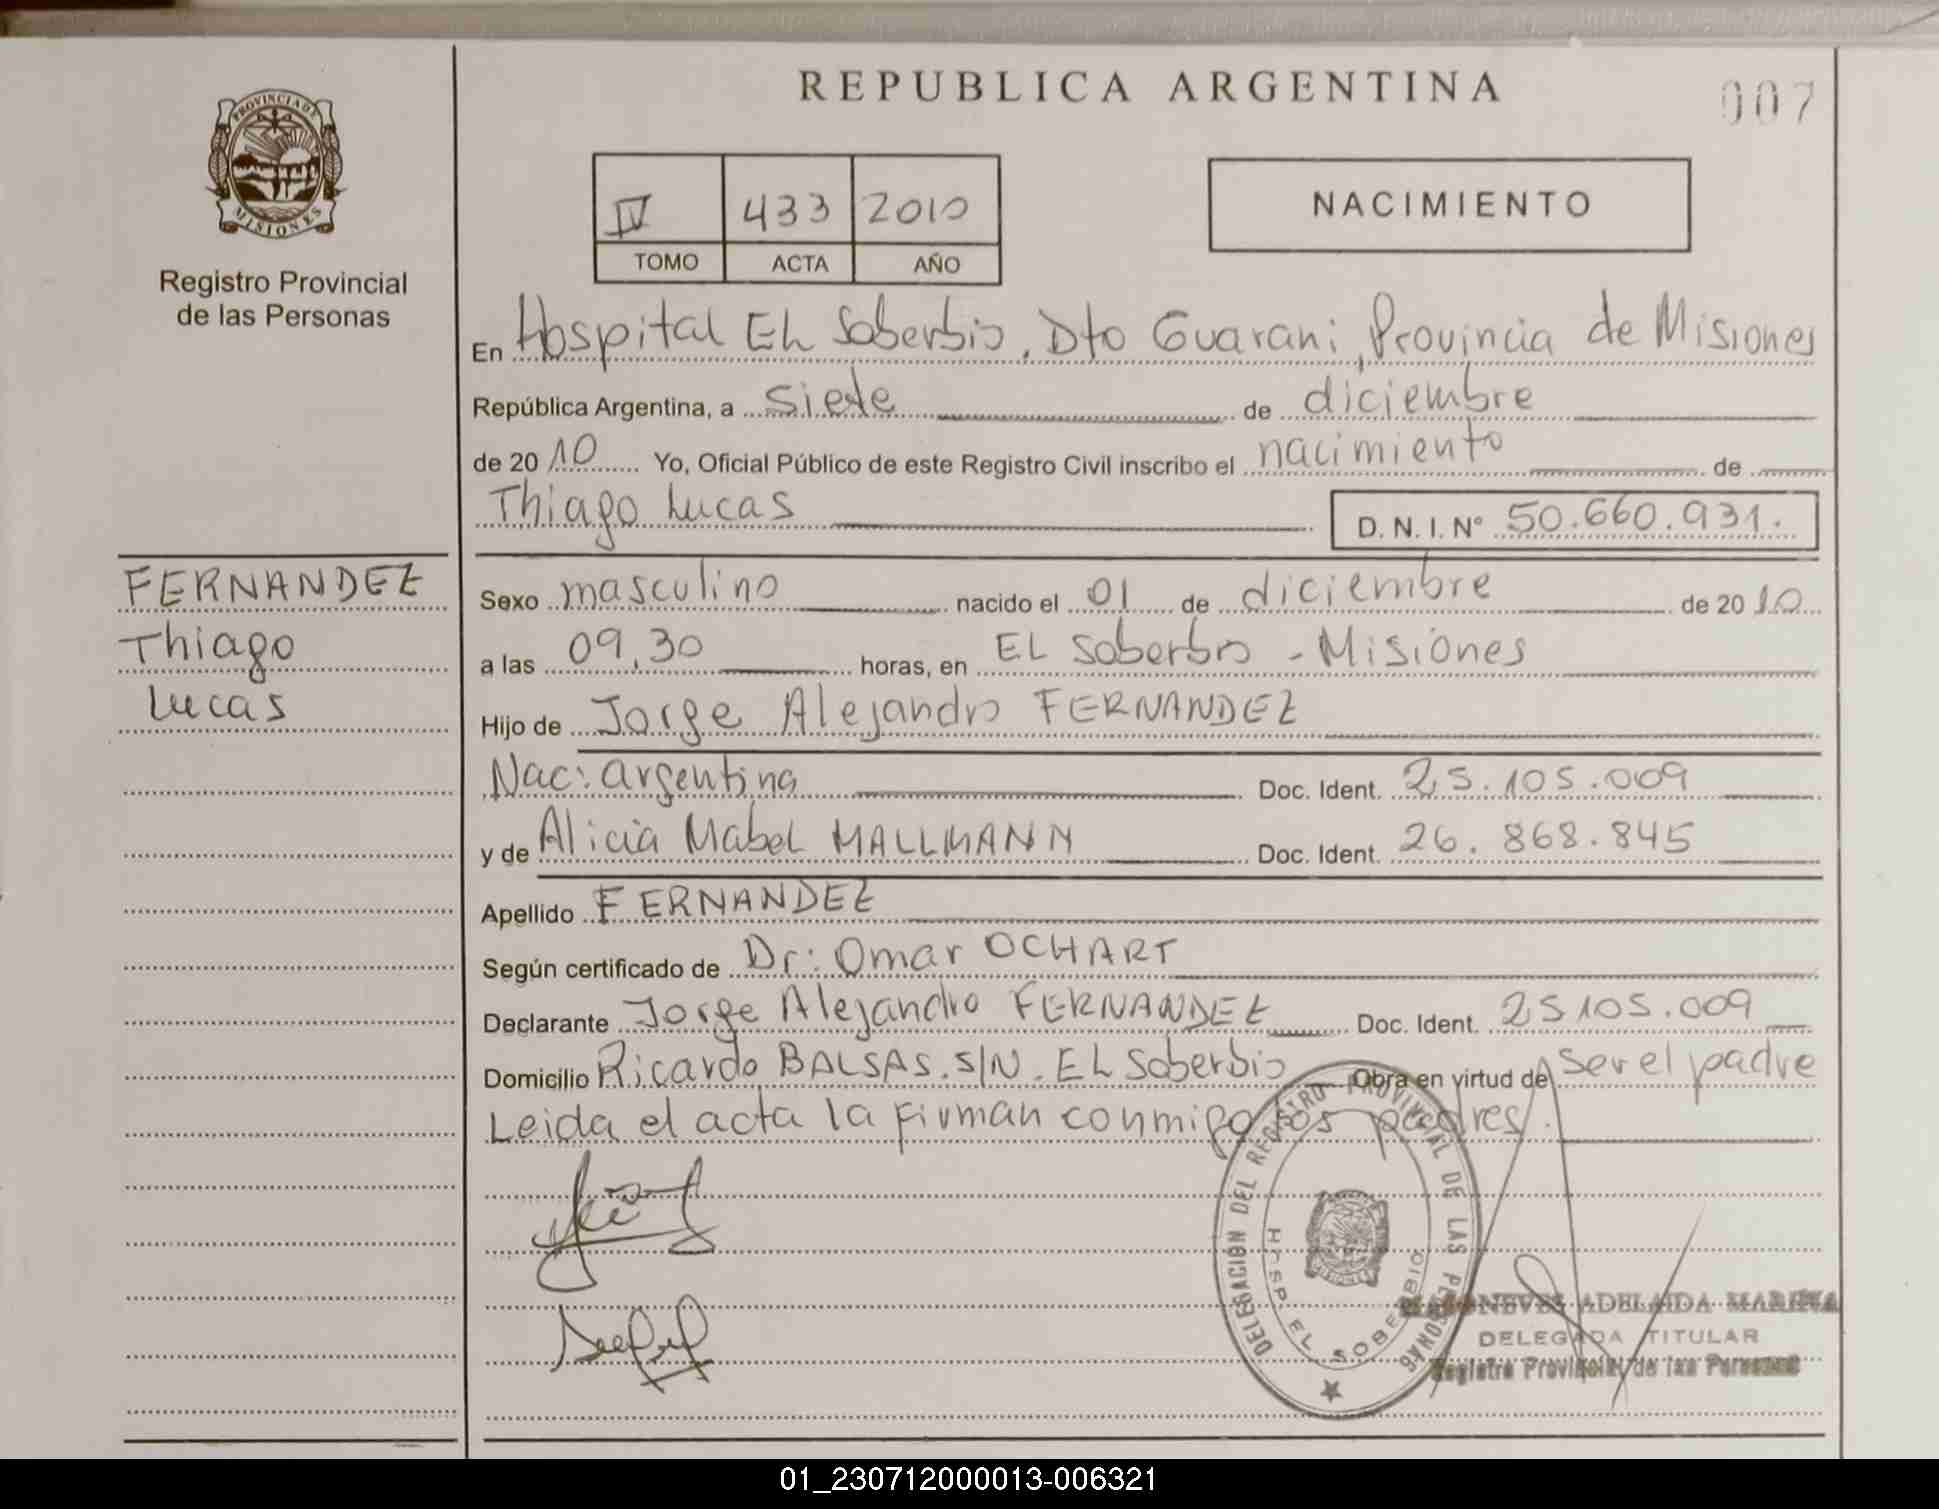 REPUBLICA ARGENTINA
007
PROVINCIA DE
MISIONES
Registro Provincial
de las Personas
IV 433 2010
TOMO ACTA AÑO
NACIMIENTO
En Hospital EL Soberbio, Dto Guarani, Provincia de Misiones
República Argentina, a siete de diciembre
de 2010 Yo, Oficial Público de este Registro Civil inscribo el nacimiento de
Thiago Lucas D. N. I. N° 50.660.931.
FERNANDEZ
Thiago
Lucas
Sexo masculino nacido el 01 de diciembre de 2010
a las 09,30 horas, en EL Soberbio - Misiones
Hijo de Jorge Alejandro FERNANDEZ
Nac: argentina Doc. Ident. 25.105.009
y de Alicia Mabel MALLMANN Doc. Ident. 26.868.845
Apellido FERNANDEZ
Según certificado de Dr: Omar OCHART
Declarante Jorge Alejandro FERNANDEZ Doc. Ident. 25105.009
Domicilio Ricardo BALSAS. S/N. EL Soberbio Obra en virtud de ser el padre
Leida el acta la firman conmigo los padres.
DELEGACION DEL REGISTRO PROVINCIAL DE LAS PERSONAS
HOSP. EL SOBERBIO
NEVES ADELAIDA MARINA
DELEGADA TITULAR
Registro Provincial de las Personas
01_230712000013-006321